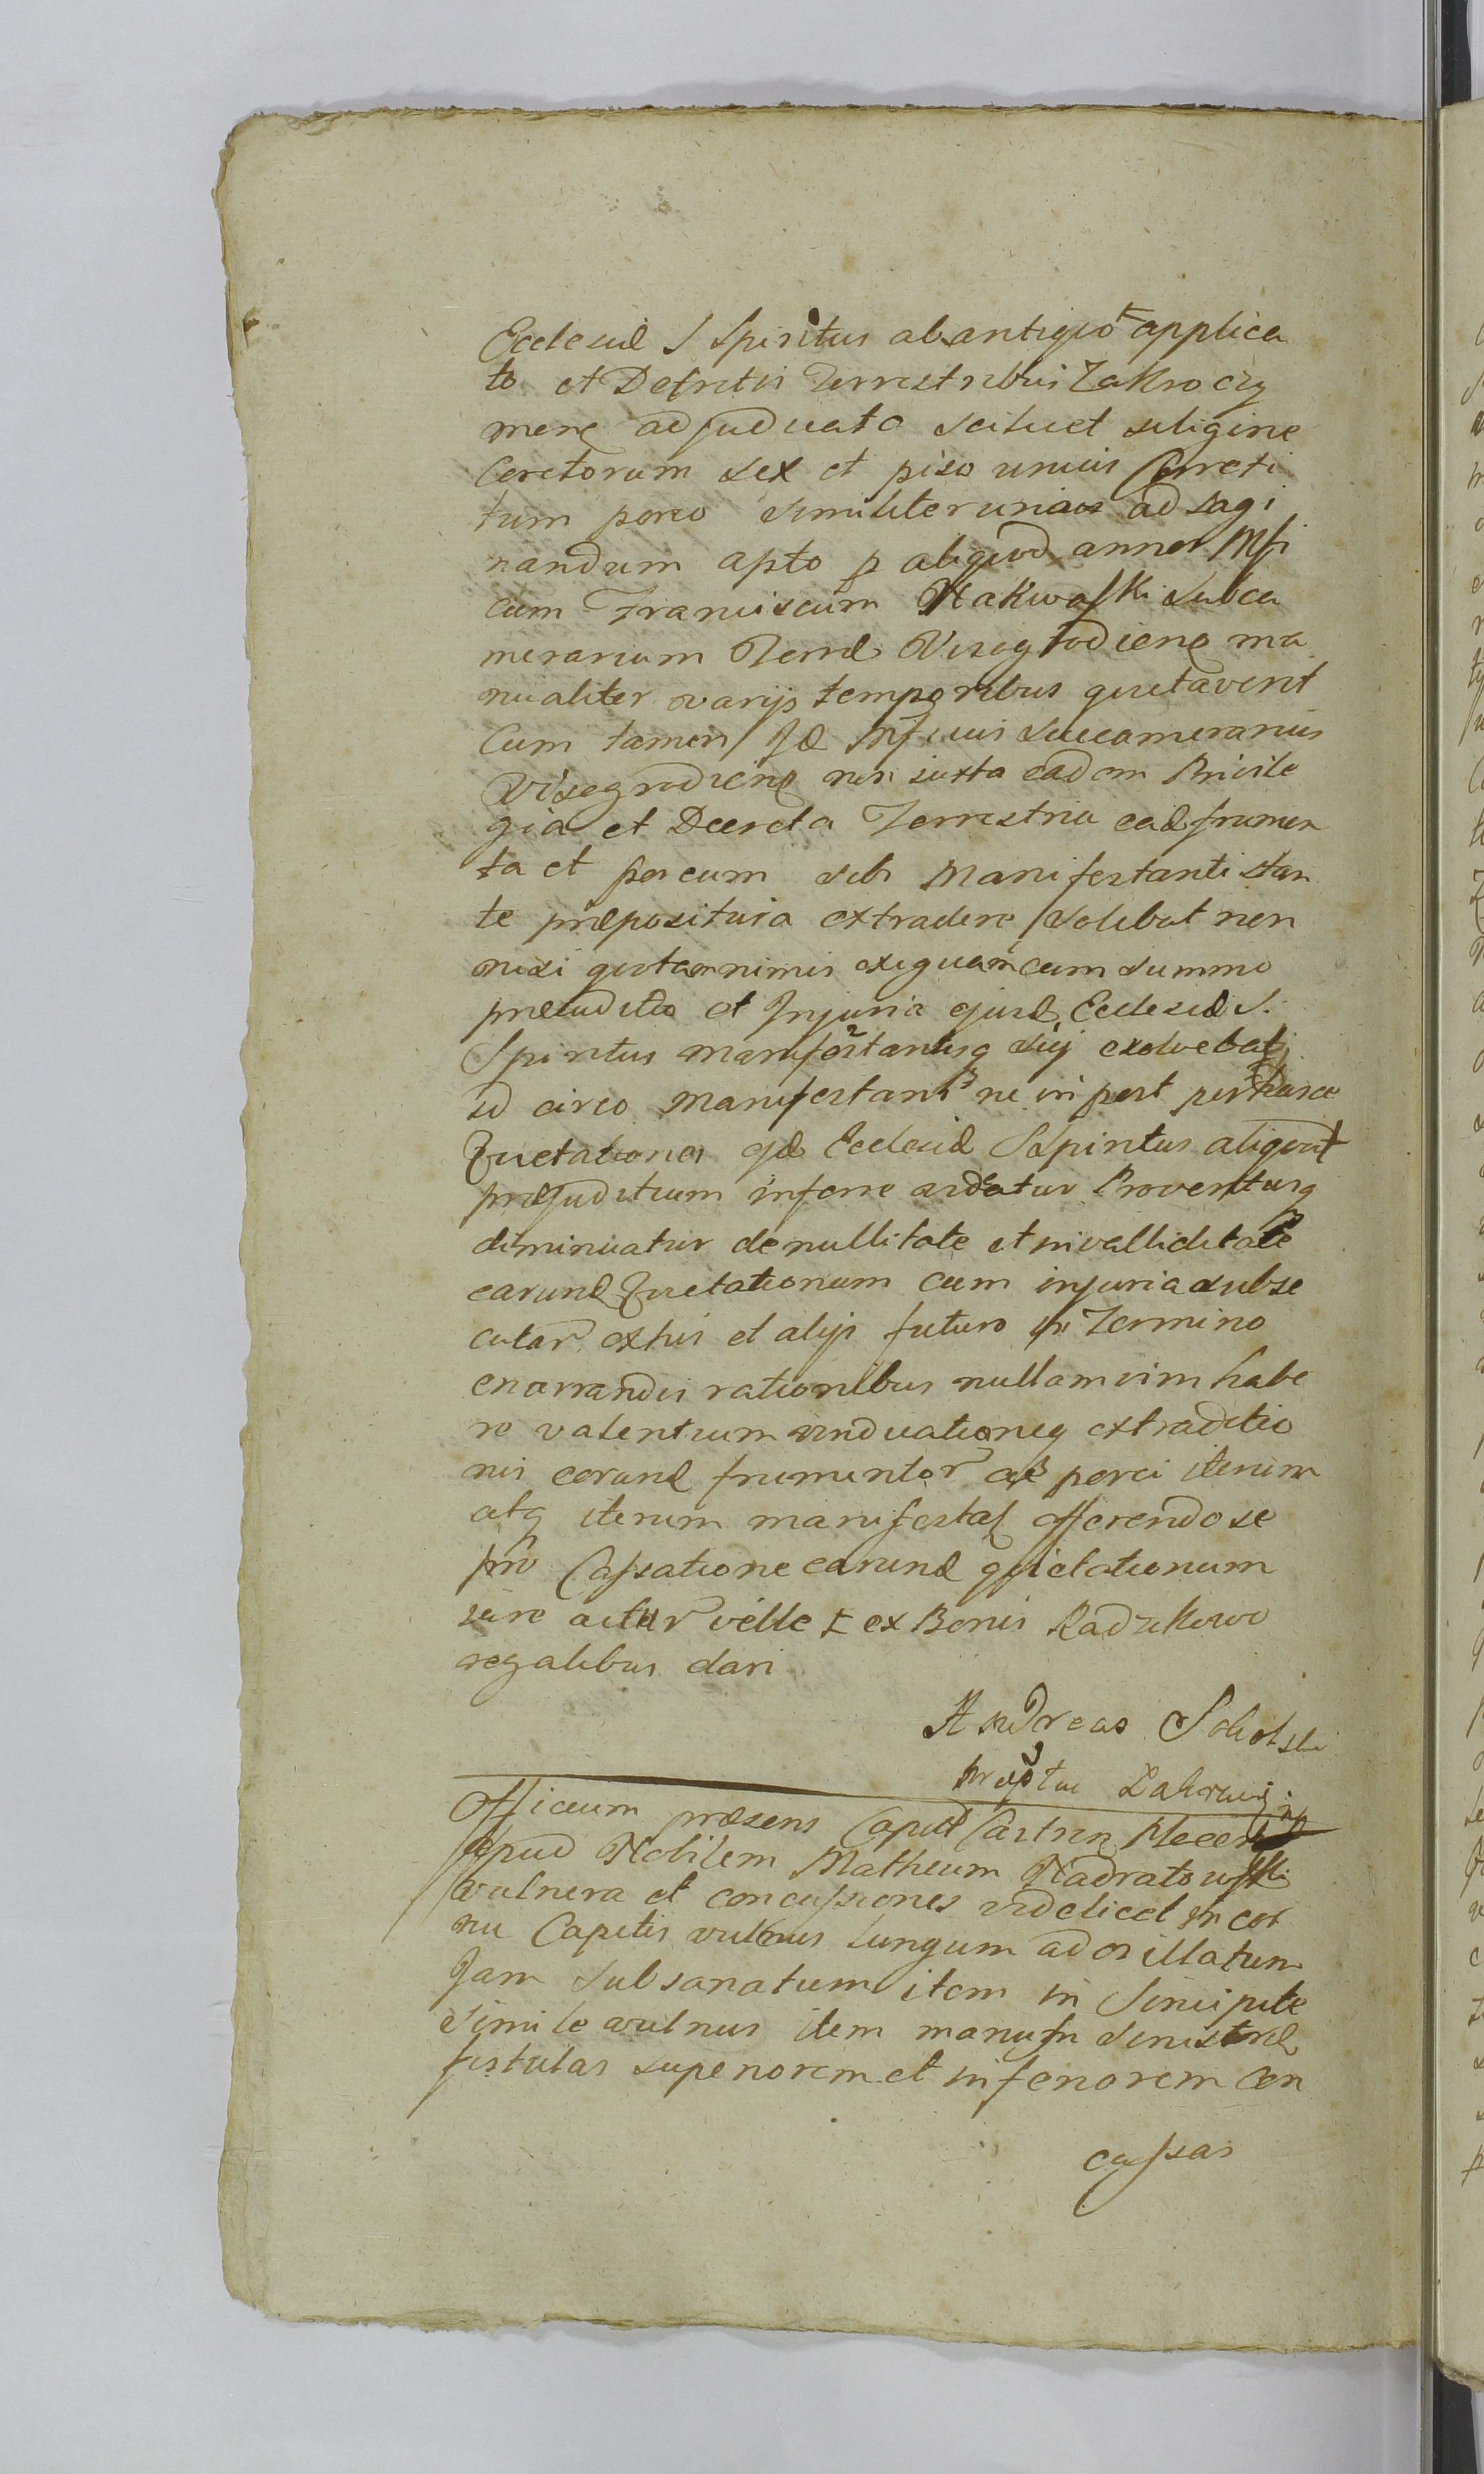 Ecclesiæ S Spiritus ab antiquo ⌶ applica
to et Decretis Terrestribus Zakroczy
menȩ adjudicato scilicet siligine
Ceretorum sex et piso unius Cereti
tum porco similiter unius ad sagi
nandum apto p aliquod annos Mfi
cum Franciscum Nakwaski Subca
merarium Terræ Visogrodienȩ ma
nualiter varijs temporibus quietaverit
Cum tamen Jd Mficus Succamerarius
Visegrodienȩ non iuxta eadem Privile
gia et Decreta Terrestria ead frumen
ta et porcum sibi Manifestanti stan
te præpositura extradere solebat non
nisi quotam nimis exiguam cum summo
præiuditio et Injuria ejusd Ecclesiæ S.
Spiritus manifestantisq sui exolvebat
id circo Manifestans ne in post per hasce
Quietationes ejd Ecclesiæ S Spiritus aliquod
præjuditium inferre videatur Proventusq
diminuatur de nullitate et invalliditate
earund Quietationum cum injuria subse
cutar ex his et alijs futuro in Termino
enarrandis rationibus nullam vim habe
re valentium vindicationeq extraditio
nis eorund frumentor ac porci iterum
atq iterum manifestat offerendo se
pro Cassatione earund quietationum
iure actur velle ⌶ ex Bonis Radzikowo
regalibus dari
Andreas Sokolski
Præptus Zakrocz
Officium præsens Capit Castren Plocen
apud Nobilem Matheum Nadratowski
vulnera et concussiones videlicet in cor
nu Capitis vulnus longum ad os illatum
Jam subsanatum item in Sincipite
simile vulnus item manus sinistræ
fistulas superiorem et inferiorem con
cassas